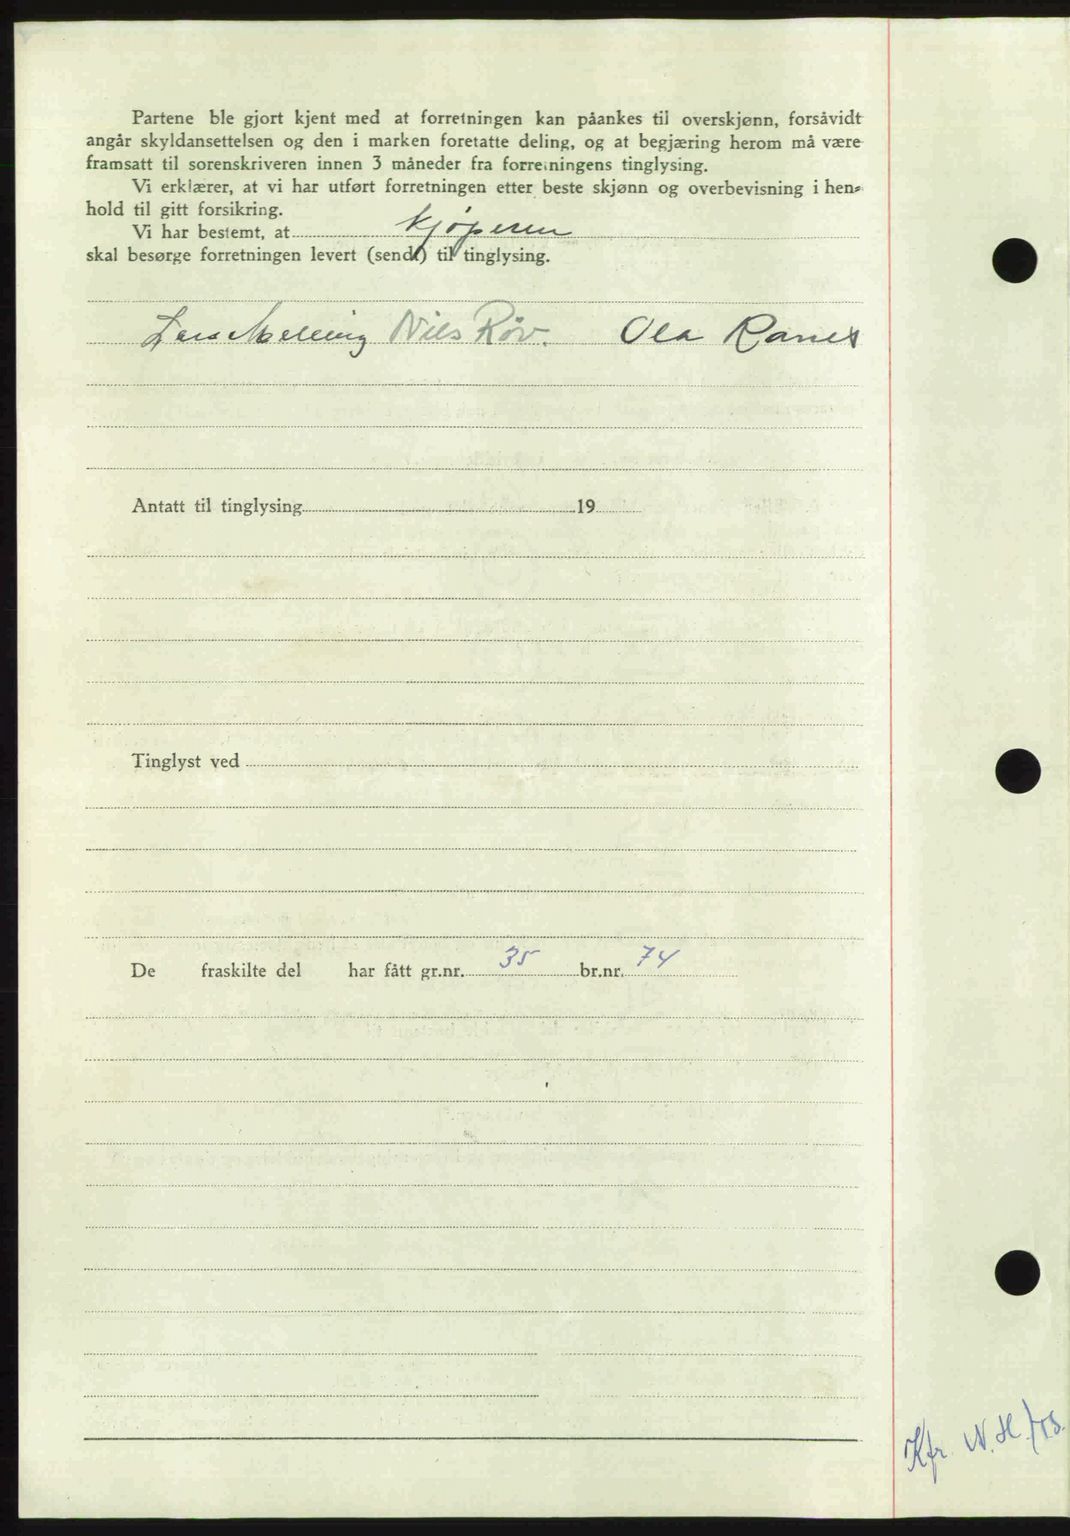 Partene ble gjort kjent med at forretningen kan påankes til overskjønn, forsåvidt
angår skyldansettelsen og den i marken foretatte deling, og at begjæring herom må være
framsatt til sorenskriveren innen 3 måneder fra forretningens tinglysing.
Vi erklærer, at vi har utført forretningen etter beste skjønn og overbevisning i hen-
hold til gitt forsikring.
Vi har bestemt, at kjøperen
skal besørge forretningen levert (sendt) til tinglysing.
Nils Röv. Ola Ranes
Antatt til tinglysing 19
Tinglyst ved
De fraskilte del har fått gr.nr. 35 br.nr. 74
Kfr. N.H.